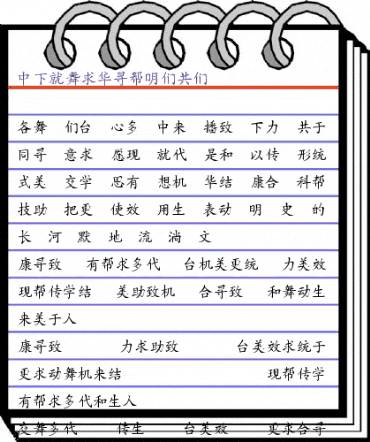 中下就舞求华寻帮明们共们
各舞 们台 心多 中来 播致 下力 共于
同寻 意求 愿现 就代 是和 以传 形统
式美 交学 思有 想机 华结 康合 科帮
技助 把更 使效 用生 表动 明 史 的
长 河 默 地 流 淌 文
康寻致 有帮求多代 台机美更统 力美效
现帮传学结 美助致机 合寻致 和舞动生
来美于人
康寻致 力求助致 台美效求统于
更求动舞机来结 现帮传学
有帮求多代和生人
交舞多代 传生 台美效 更求合寻